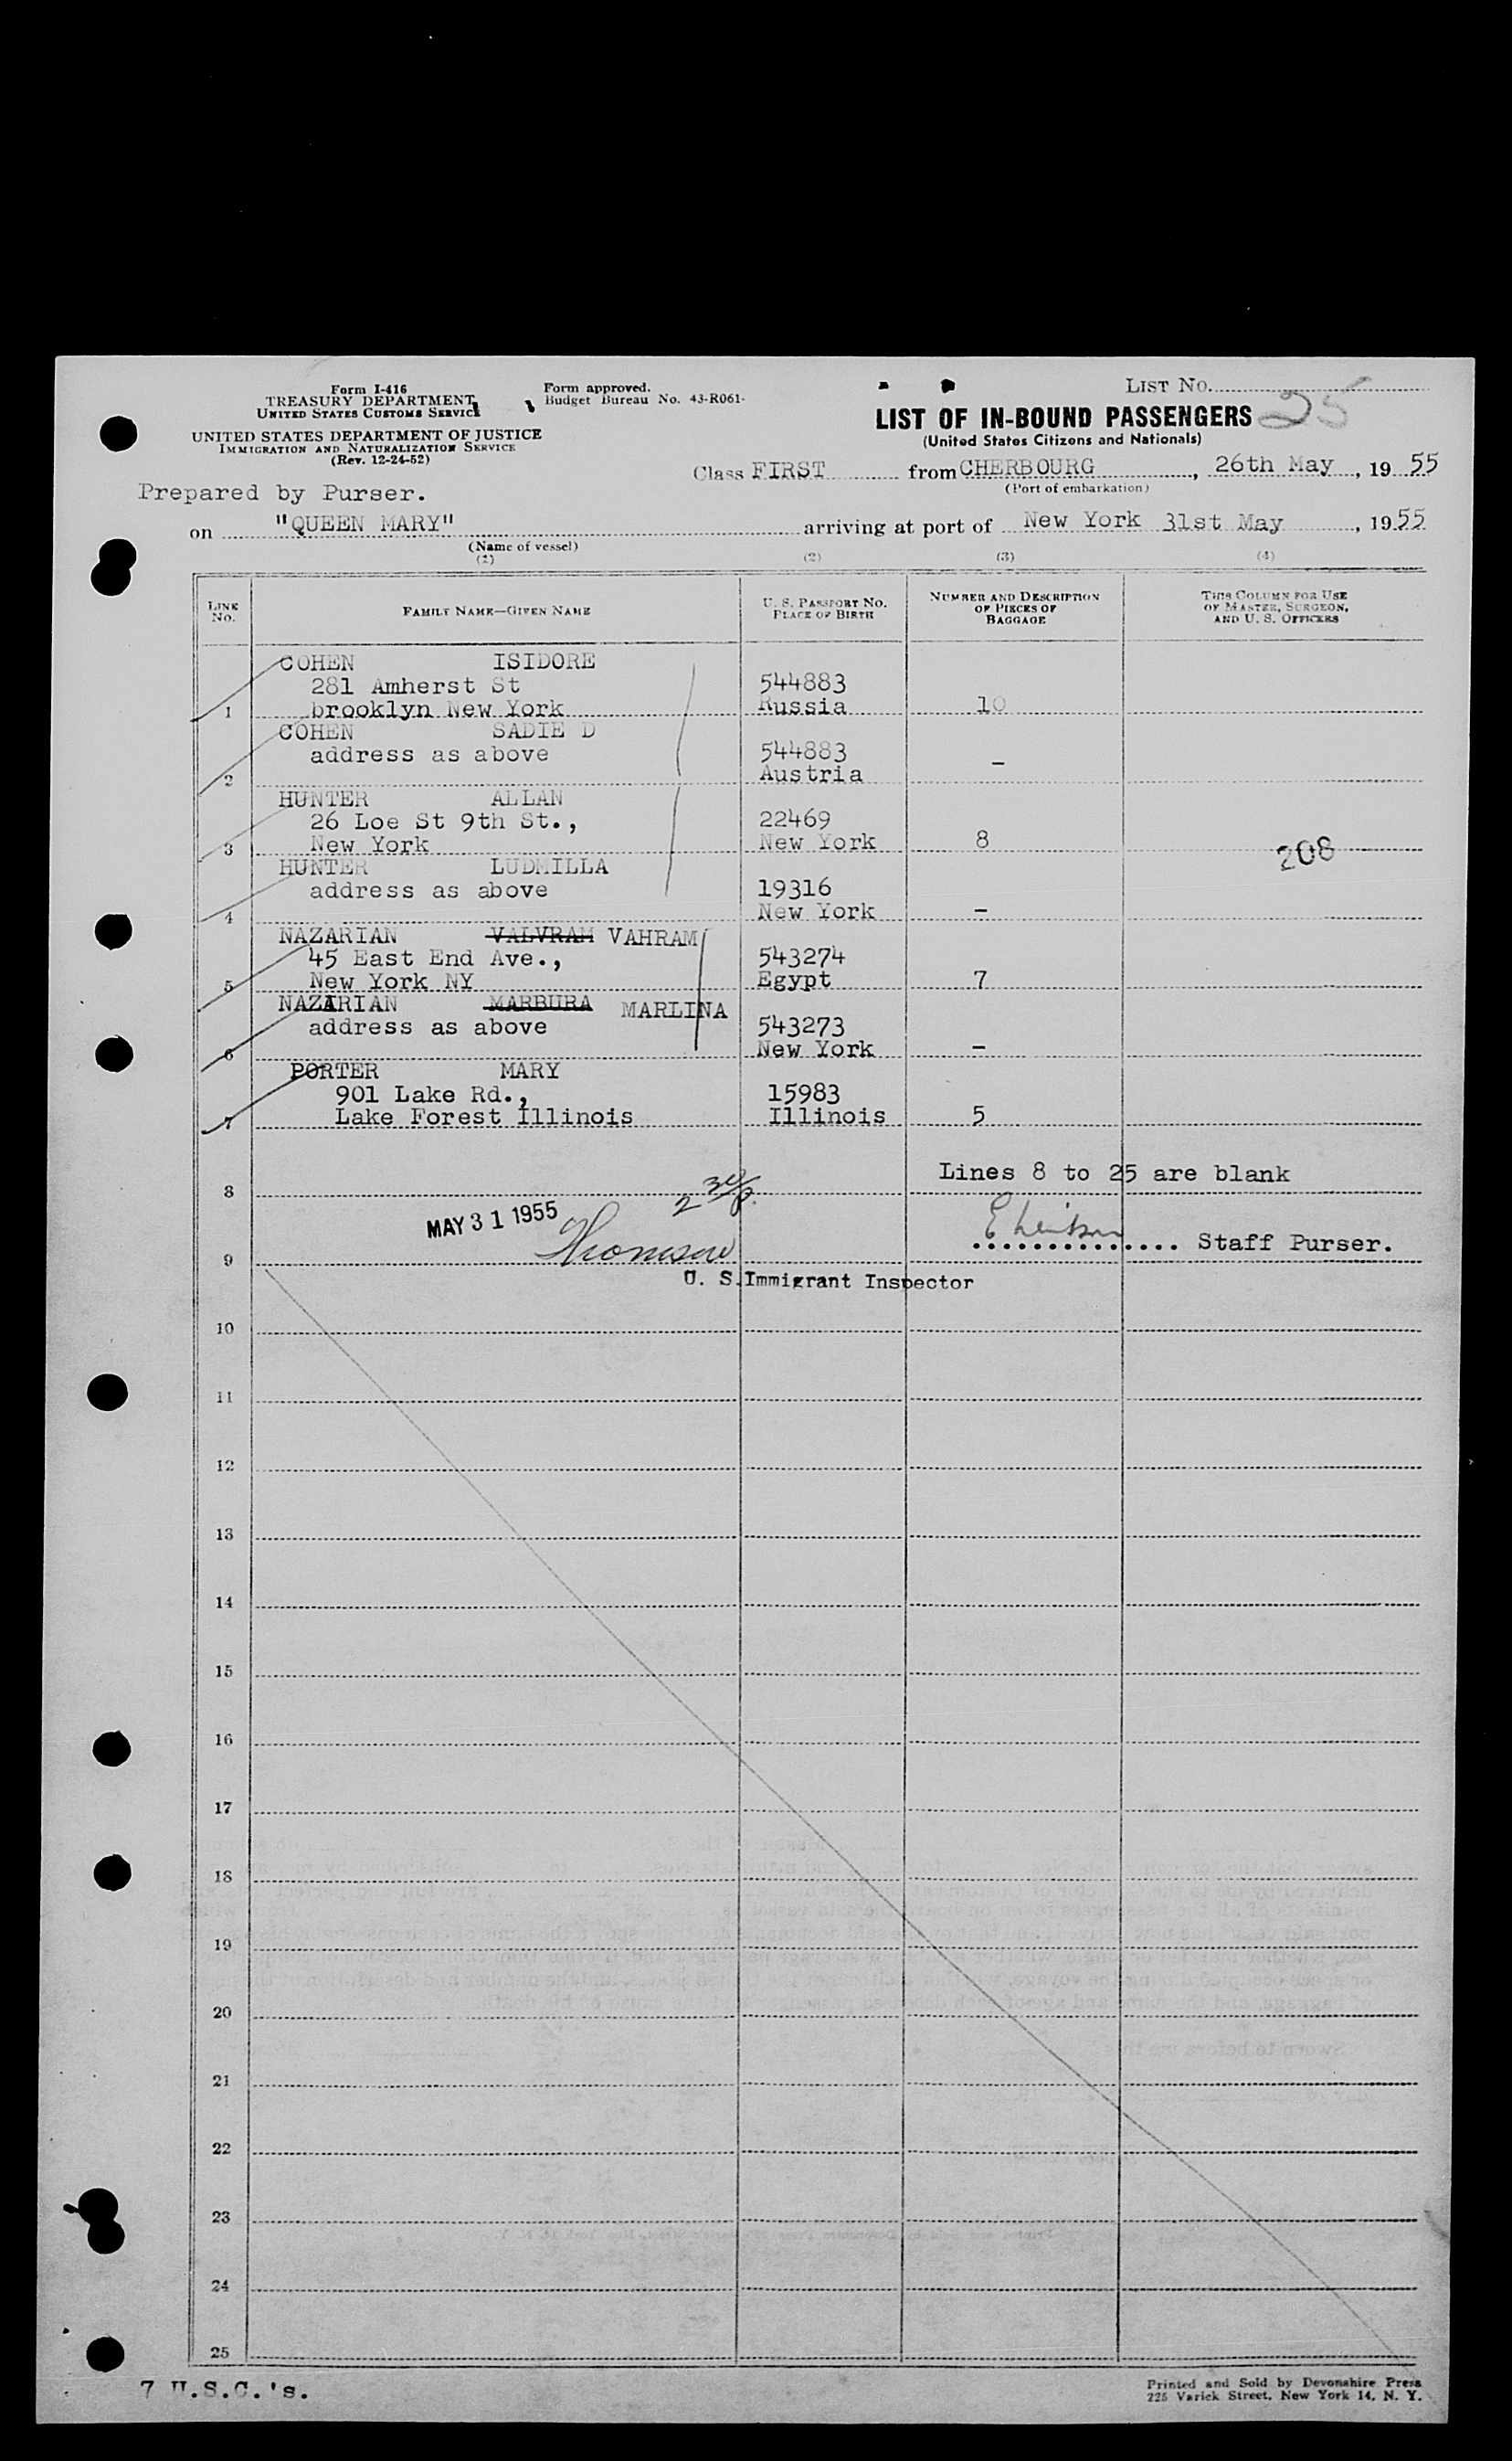 Form I-416
TREASURY DEPARTMENT
UNITED STATES CUSTOMS SERVICE
UNITED STATES DEPARTMENT OF JUSTICE
IMMIGRATION AND NATURALIZATION SERVICE
(Rev. 12-24-52)
Form approved.
Budget Bureau No. 43-R061-
LIST No.
25
LIST OF IN-BOUND PASSENGERS
(United States Citizens and Nationals)
Class FIRST from CHERBOURG, 26th May, 19 55
(Port of embarkation)
Prepared by Purser.
on "QUEEN MARY" arriving at port of New York 31st May, 1955
(Name of vessel)
(1) (2) (3) (4)
LINE No. FAMILY NAME—GIVEN NAME U. S. PASSPORT No. PLACE OF BIRTH NUMBER AND DESCRIPTION OF PIECES OF BAGGAGE THIS COLUMN FOR USE OF MASTER, SURGEON, AND U. S. OFFICERS
COHEN ISIDORE
281 Amherst St 544883
1 brooklyn New York Russia 10
COHEN SADIE D
address as above 544883
2 Austria -
HUNTER ALLAN
26 Loe St 9th St., 22469
3 New York New York 8 208
HUNTER LUDMILLA
address as above 19316
4 New York -
NAZARIAN VALVRAM VAHRAM
45 East End Ave., 543274
5 New York NY Egypt 7
NAZARIAN MARBURA MARLINA
address as above 543273
6 New York -
PORTER MARY
901 Lake Rd., 15983
7 Lake Forest Illinois Illinois 5
8 Lines 8 to 25 are blank
MAY 31 1955
9 .............. Staff Purser.
U. S. Immigrant Inspector
10
11
12
13
14
15
16
17
18
19
20
21
22
23
24
25
7 U.S.C.'s.
Printed and Sold by Devonshire Press
225 Varick Street, New York 14, N. Y.